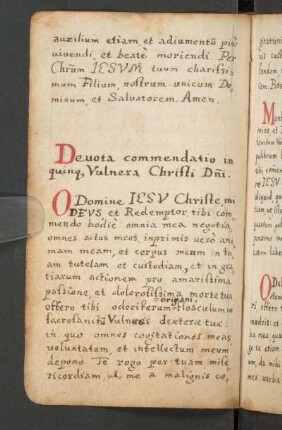 auxilium etiam, et adiumentũ piè
vivendi, et beatè moriendi. Per
Chrm̃ IESVM tuum charissi-
mum Filium, nostrum unicum Do-
minum, et Salvatorem. Amen.
Devota commendatio in
quinq, Vulnera Christi Dñi.
O Domine IESV Christe, mi
DEVS et Redemptor, tibi com-
mendo hodiè omnia mea negotia,
omnes actus meos, inprimis verò ani-
mam meam, et corpus meum in tu-
am tutelam et custodiam, et in gra-
tiarum actionem pro amarissima
passione, et dolorosissima morte tua
offero tibi odoriferum flosculum in
origani,
sacrosanctũ Vulnus dexteræ tuæ:
in quo omnes cogitationes meas,
voluntatem, et intellectum meum
depono. Te rogo per tuam mise-
ricordiam, ut me a malignis co,